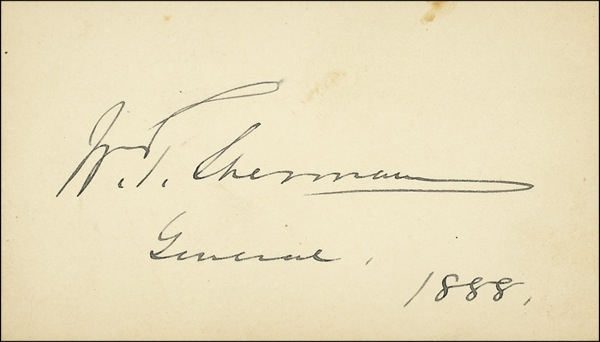 W. T. Sherman
General.
1888.